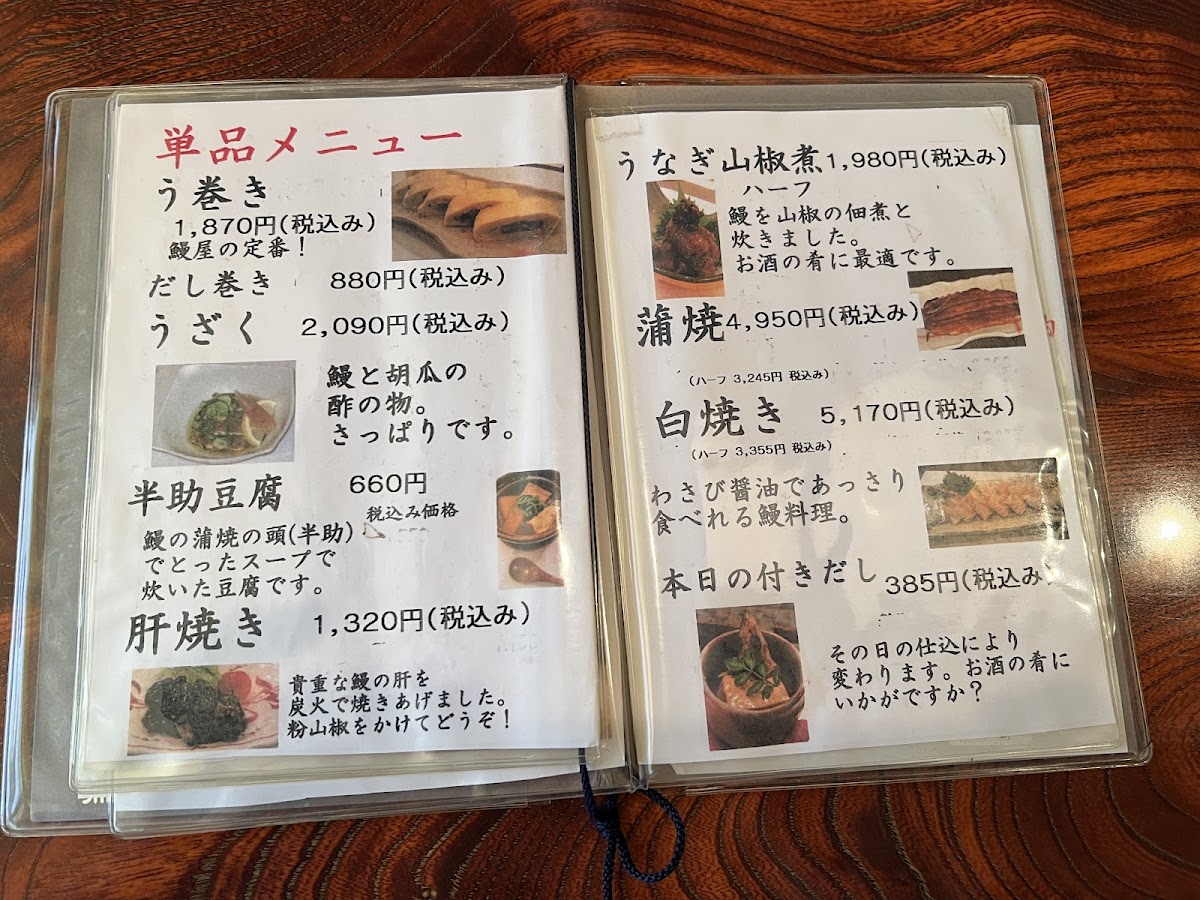 単品メニュー
う巻き
1,870円(税込み)
鰻屋の定番！
だし巻き 880円(税込み)
うざく 2,090円(税込み)
鰻と胡瓜の
酢の物。
さっぱりです。
半助豆腐 660円
税込み価格
鰻の蒲焼の頭(半助)
でとったスープで
炊いた豆腐です。
肝焼き 1,320円(税込み)
貴重な鰻の肝を
炭火で焼きあげました。
粉山椒をかけてどうぞ！
うなぎ山椒煮 1,980円(税込み)
ハーフ
鰻を山椒の佃煮と
炊きました。
お酒の肴に最適です。
蒲焼 4,950円(税込み)
(ハーフ 3,245円 税込み)
白焼き 5,170円(税込み)
(ハーフ 3,355円 税込み)
わさび醤油であっさり
食べれる鰻料理。
本日の付きだし 385円(税込み)
その日の仕込により
変わります。お酒の肴に
いかがですか？